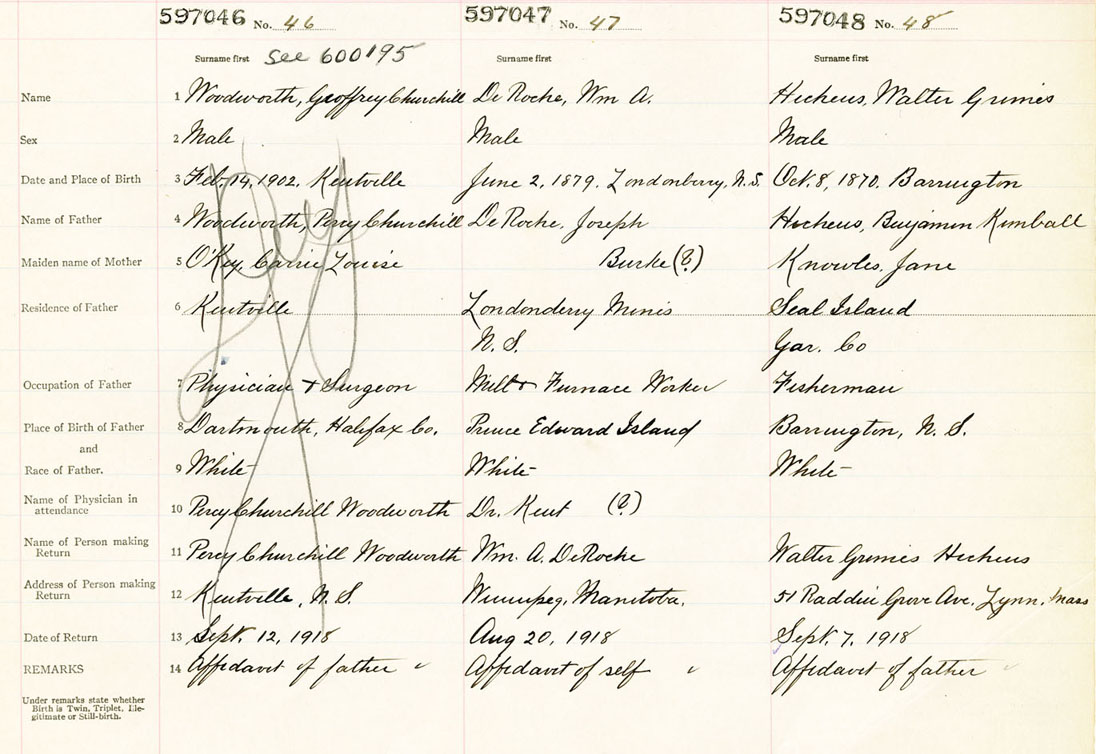 597046 No. 46 597047 No. 47 597048 No. 48
Surname first See 600195 Surname first Surname first
Name 1 Woodworth, Geoffrey Churchill De Roche, Wm A. Hichens, Walter Grimes
Sex 2 Male Male Male
Date and Place of Birth 3 Feb. 14, 1902. Kentville June 2, 1879. Londonberry, N.S. Oct. 8, 1870. Barrington
Name of Father 4 Woodworth, Percy Churchill De Roche, Joseph Hichens, Benjamin Kimball
Maiden name of Mother 5 O'Key, Carrie Louise Burke (?) Knowles, Jane
Residence of Father 6 Kentville Londonderry Mines Seal Island
N. S. Yar. Co
Occupation of Father 7 Physician & Surgeon Mill & Furnace Worker Fisherman
Place of Birth of Father 8 Dartmouth, Halifax Co. Prince Edward Island Barrington, N. S.
and
Race of Father. 9 White White White
Name of Physician in
attendance 10 Percy Churchill Woodworth Dr. Kent (?)
Name of Person making
Return 11 Percy Churchill Woodworth Wm. A. DeRoche Walter Grimes Hichens
Address of Person making
Return 12 Kentville, N. S. Winnipeg, Manitoba. 51 Raddin Grove Ave. Lynn. Mass
Date of Return 13 Sept. 12, 1918 Aug 20, 1918 Sept. 7, 1918
REMARKS 14 Affidavit of father " Affidavit of self " Affidavit of father "
Under remarks state whether
Birth is Twin, Triplet, Ille-
gitimate or Still-birth.